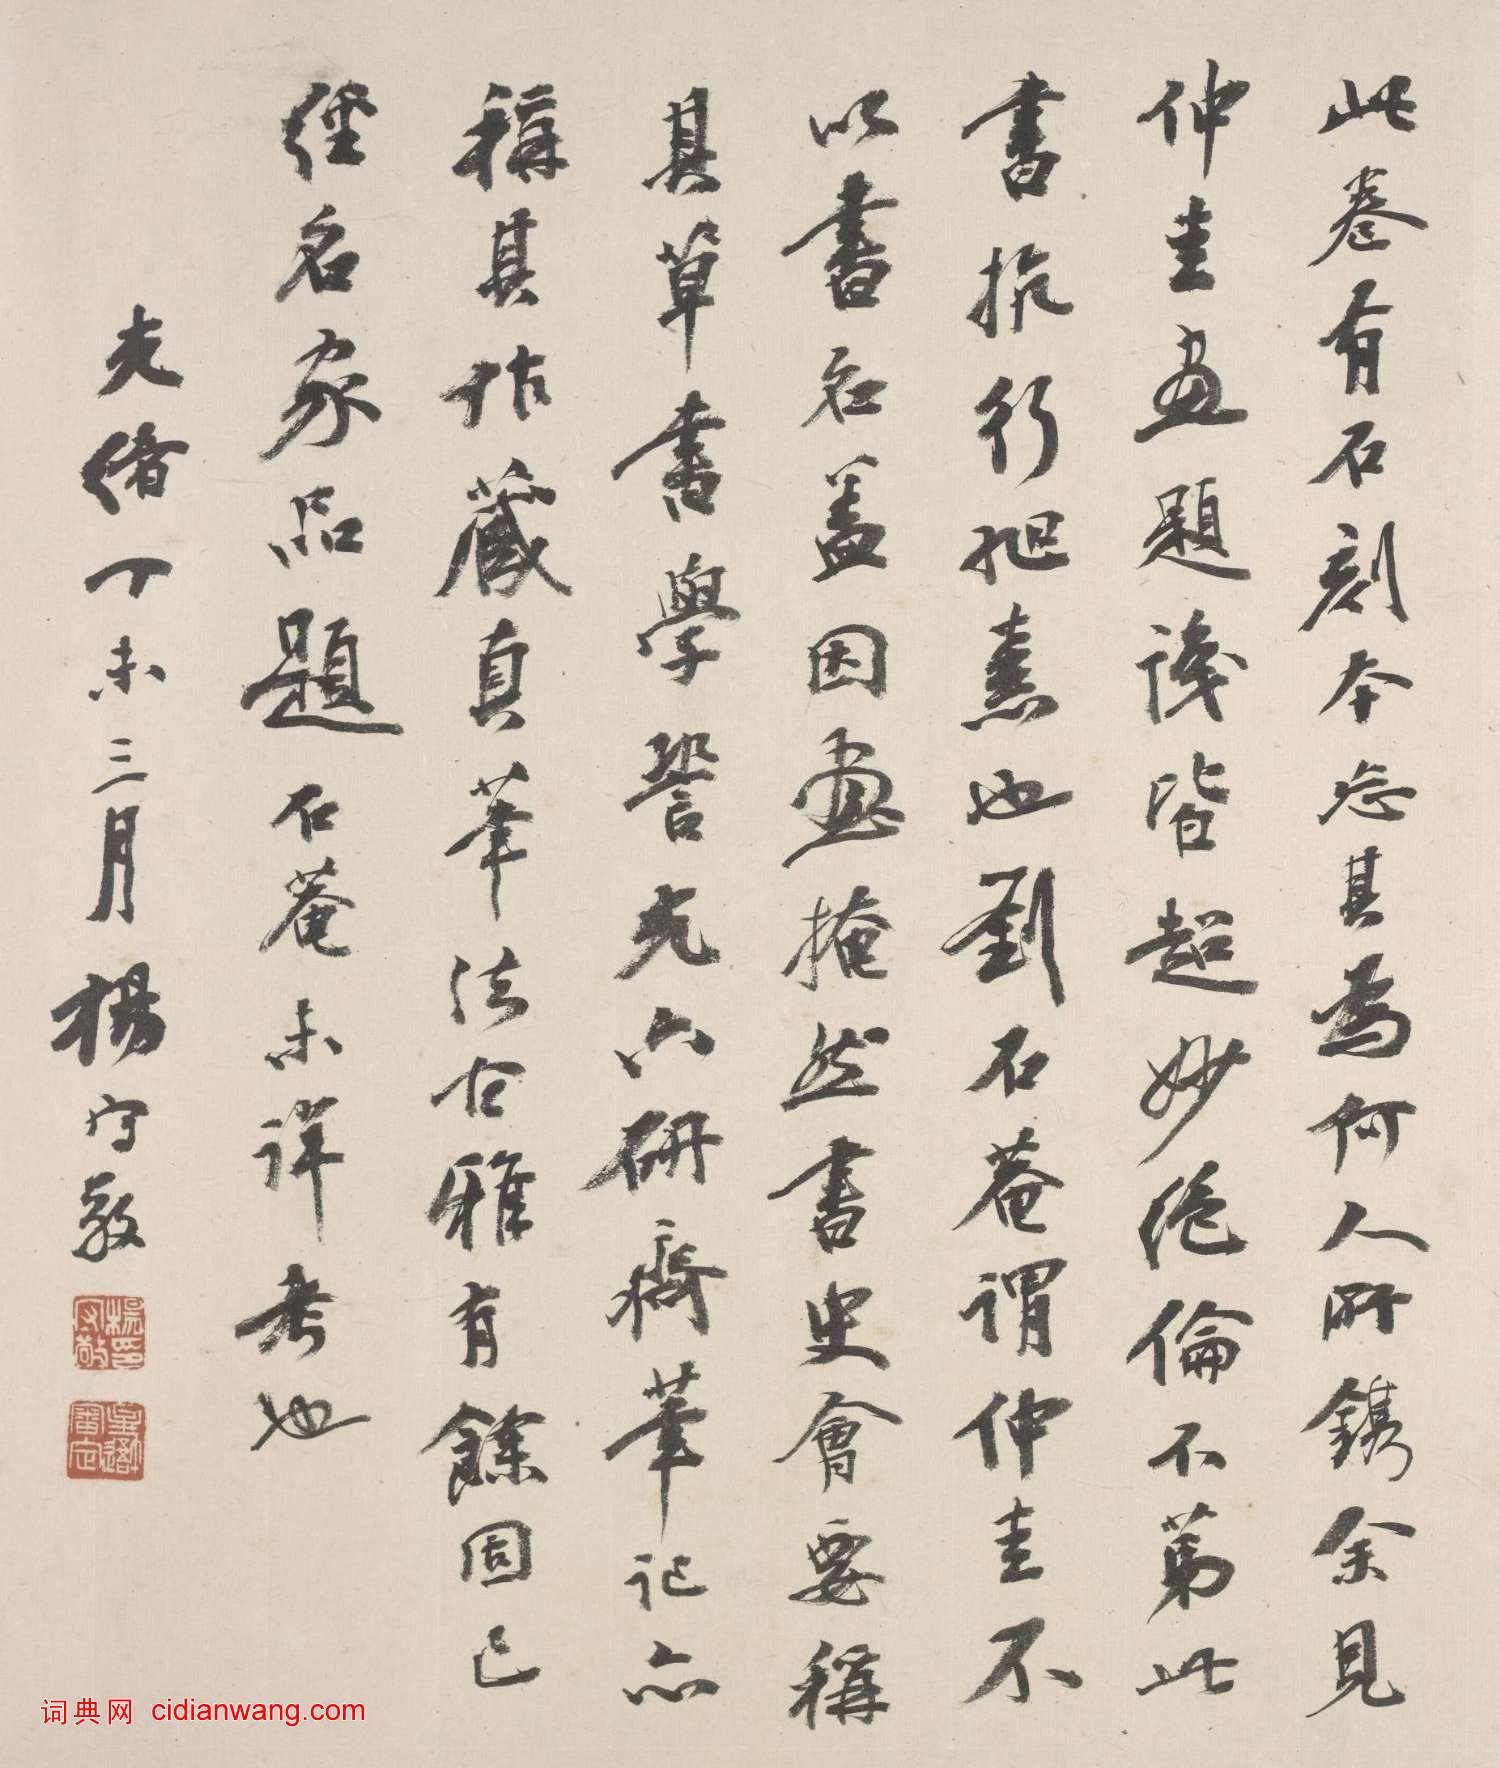 此卷有石刻本忘其為何人所鐫余見
仲圭畫題識皆超妙絕倫不第此
書抗行旭素也劉石菴謂仲圭不
以書名蓋因畫掩然書史會要稱
其草書學䛒光六研齋筆記亦
稱其估藏真筆法古雅有餘固已
經名家品題石菴未詳考也
光緒丁未三月楊守敬
楊守敬印
星吾審定
词典网 cidianwang.com